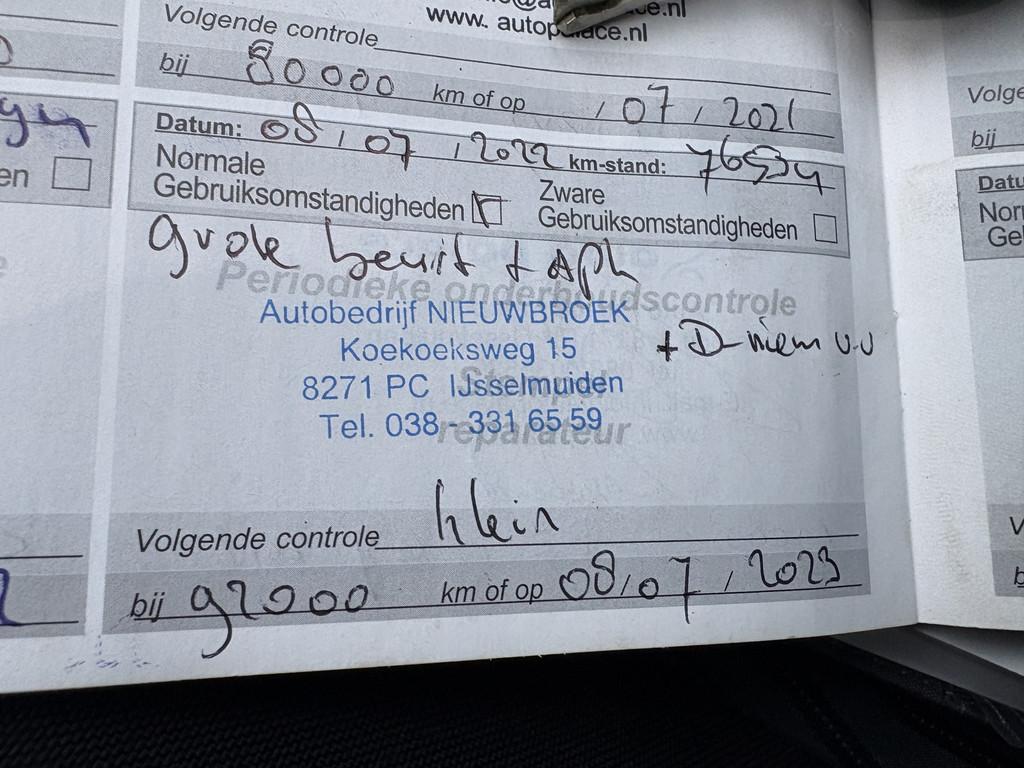 www. autopalace.nl
Volgende controle
bij 80000 km of op / 07 / 2021
Datum: 08 / 07 / 2022 km-stand: 76534
Normale Gebruiksomstandigheden
Zware Gebruiksomstandigheden
grote beurt + APK
Periodieke onderhoudscontrole
Autobedrijf NIEUWBROEK
+ D-riem v.v
Koekoeksweg 15
Stempel
8271 PC IJsselmuiden
Tel. 038 - 331 65 59
reparateur
Volgende controle klein
bij 92000 km of op 08 / 07 / 2023
en
Volge
bij
Datu
Nor
Ge
V
b